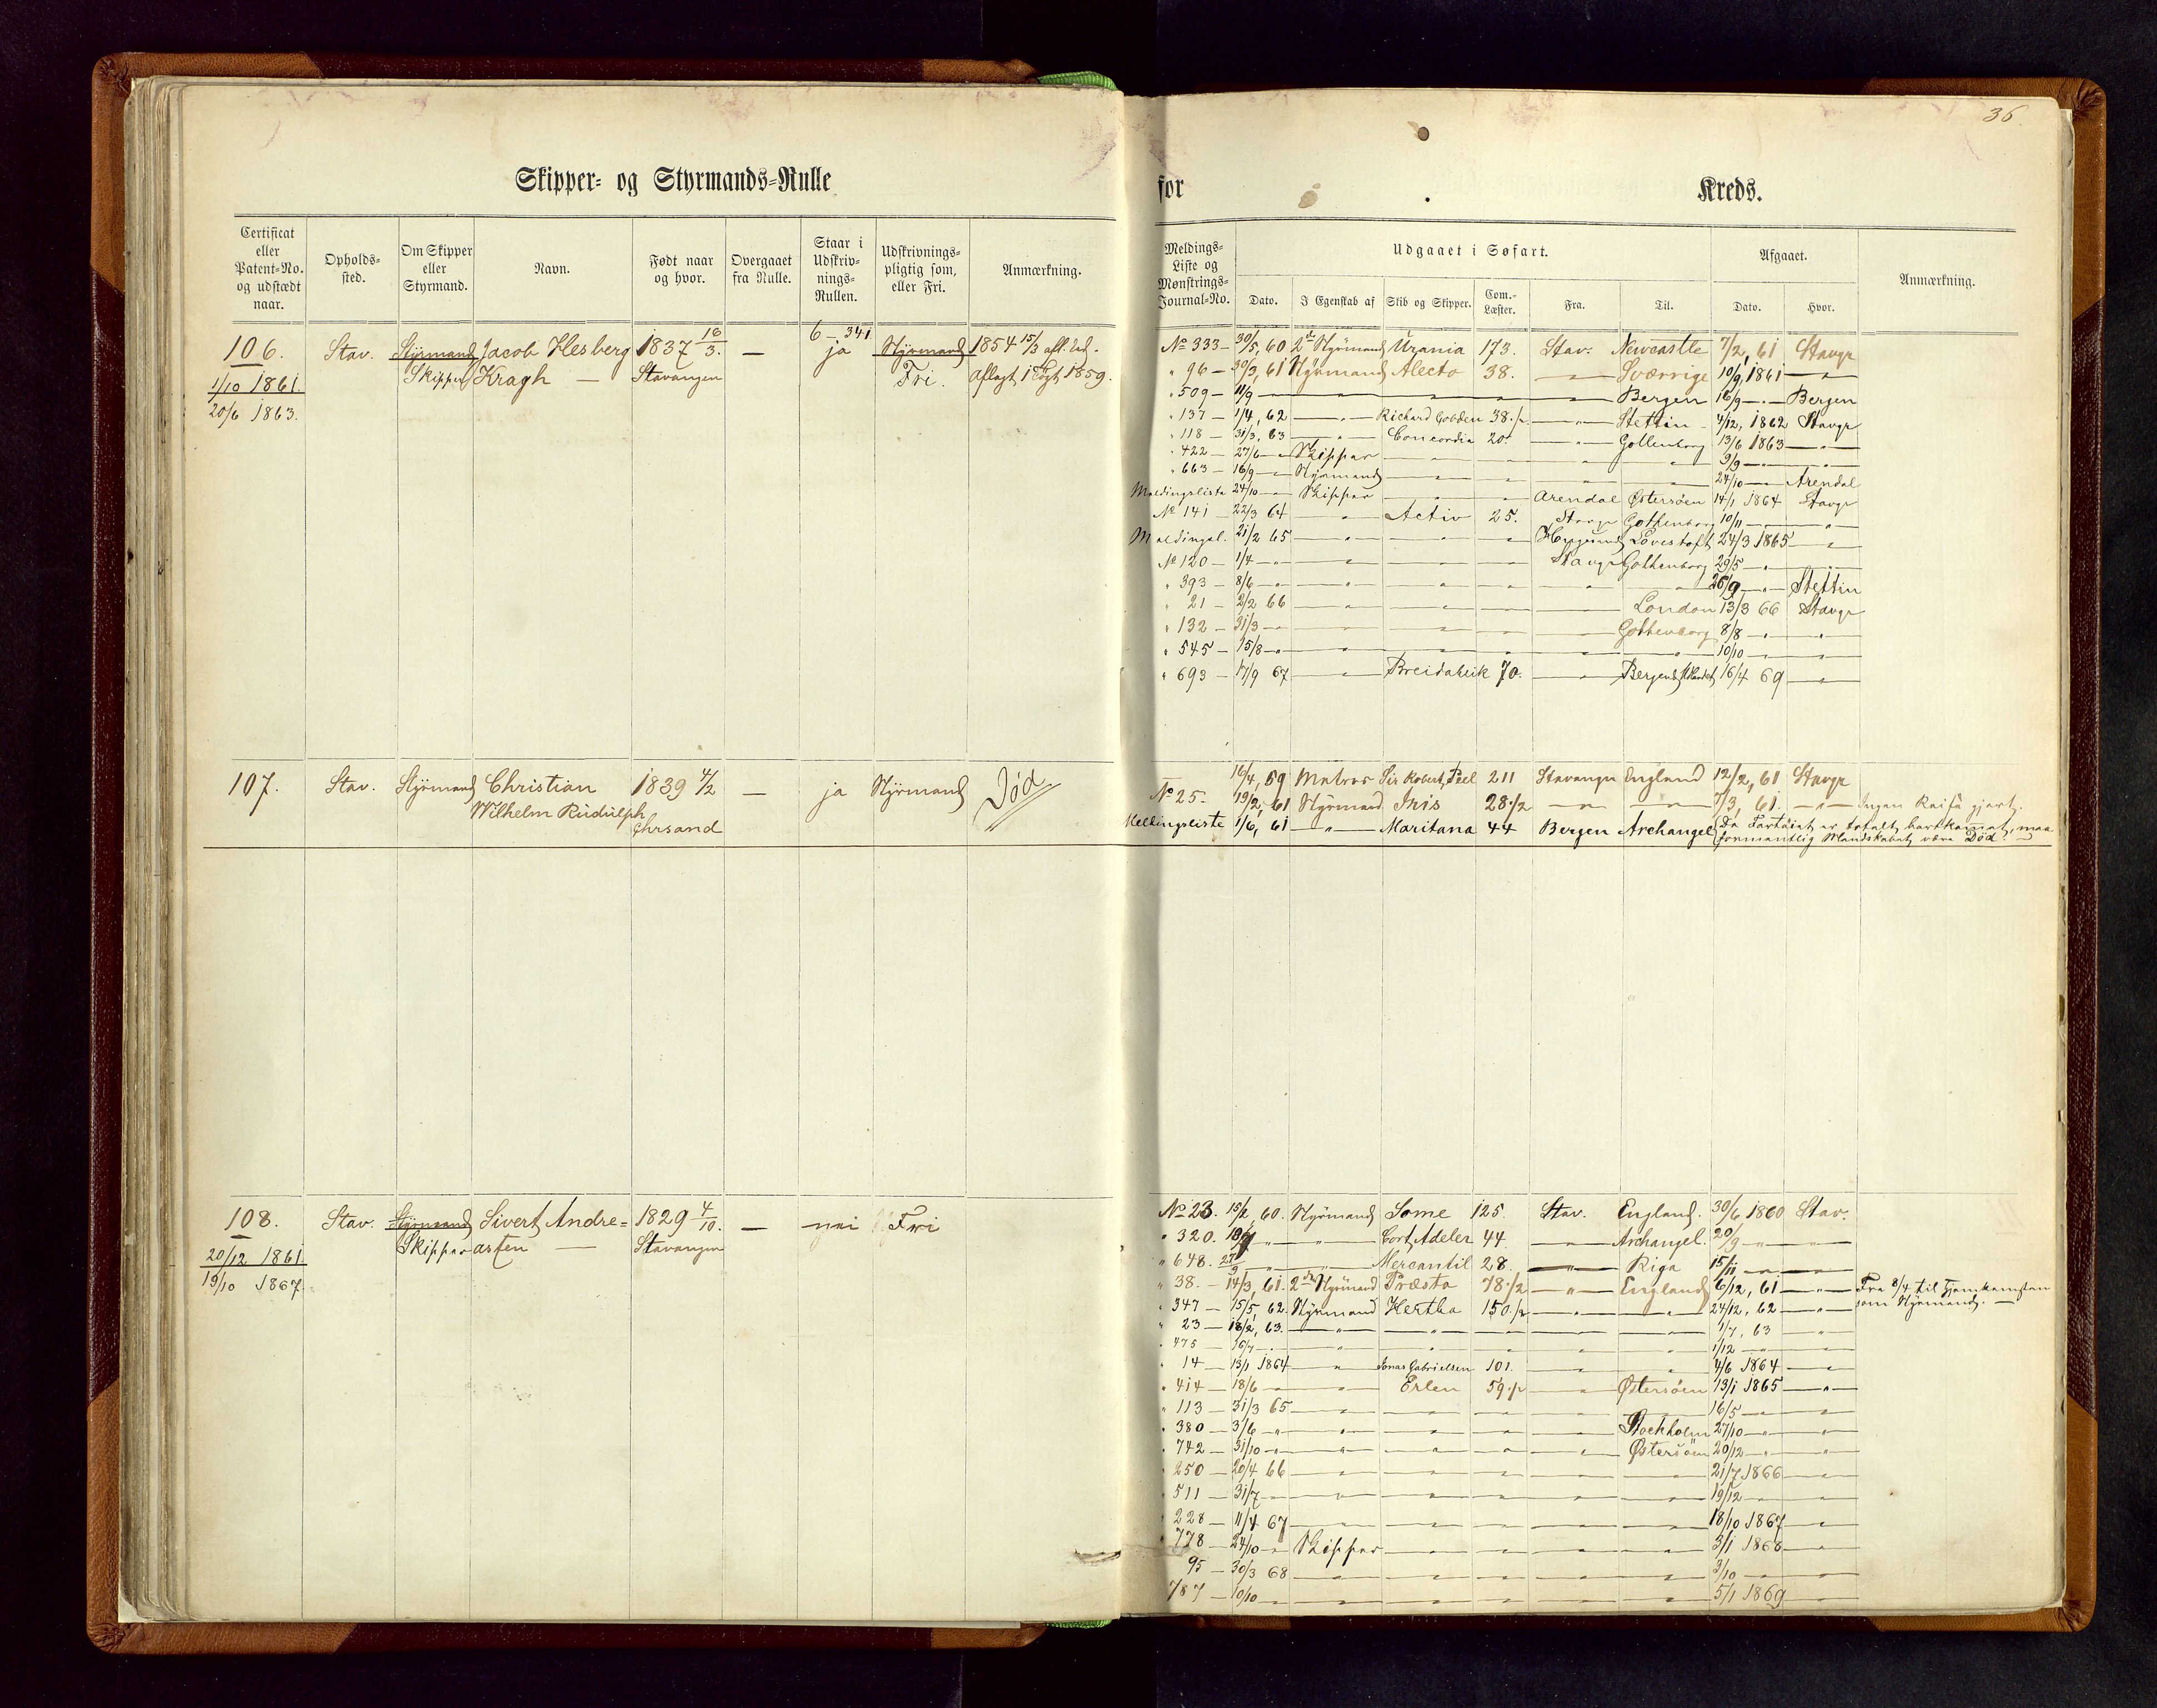 36
Skipper- og Styrmands-Rulle
for
Kreds.
Certificat eller Patent-No. og udstædt naar.
Opholds-sted.
Om Skipper eller Styrmand.
Navn.
Født naar og hvor.
Overgaaet fra Rulle.
Staar i Udskriv-nings-Rullen.
Udskrivnings-pligtig som, eller Fri.
Anmærkning.
Meldings-Liste og Mønstrings-Journal-No.
Udgaaet i Søfart.
Dato.
I Egenskab af
Skib og Skipper.
Com.-Læster.
Fra.
Til.
Afgaaet.
Dato.
Hvor.
Anmærkning.
106. Stav. Styrmand Jacob Hesberg 1837 16/3. — 6 - 341 ja Styrmand 1854 15/3 afl. Ed.
1/10 1861. Skipper Kragh — Stavanger Fri. Aflagt 1 Togt 1859.
20/6 1863.
No 333 — 30/5, 60 2den Styrmand Urania 173. Stav. Newcastle 7/2, 61 Stavgr
" 96 — 30/3, 61 Styrmand Alecto 38. — " — Sverrige 10/9, 1861 — " —
" 509 — 11/9 — " — Bergen 16/9 — " — Bergen
" 137 — 1/4, 62 — " — Richard Cobden 38 1/2 — " — Stettin 4/12, 1862 Stavgr
" 118 — 31/3, 63 — " — Concordia 20. — " — Gottenborg 13/6 1863 — " —
" 422 — 27/6 — " Skipper — " — 9/9 — " —
" 663 — 16/9 — " Styrmand — " — 24/10 — " — Arendal
Meldingsliste 24/10 — " Skipper — " — Arendal Østersøen 14/1 1864 Stavgr
No 141 — 22/3 64 — " — Activ 25. Stavgr Gothenborg 10/11 — " —
Meldingsl. 21/2 65 — " — Lovestoft 24/3 1865 — " —
No 120 — 1/4 — " — Stavgr Gothenborg 29/5 — " —
" 393 — 8/6 — " — 26/9 — " — Stettin
" 21 — 2/2 66 — " — London 13/3 66 Stavgr
" 132 — 31/3 — " — Gothenborg 8/8 — " —
" 545 — 15/8 — " — 10/10 — " —
" 693 — 17/9 67 — " — Breidablik 70. — " — 16/4 69 — " —
107. Stav. Styrmand Christian 1839 4/2 — ja Styrmand Død
Wilhelm Rudulph Chrsand
16/4, 59 Matros Sir Robert Peel 211 Stavanger England 12/2, 61 Stavgr
No 25. 19/2, 61 Styrmand Iris 28 1/2 — " — 7/3, 61. — " — Ingen Reise gjort.
Meldingsliste 1/6, 61 — " — Maritana 44 Bergen Archangel (Da Fartøiet er totalt bortkommet, maa
formentlig Mandskabet være Død. —
108. Stav. Styrmand Sivert Andre= 1829 4/10. — nei Fri
20/12 1861. Skipper asen — Stavanger
19/10 1867.
No 23. 15/2, 60. Styrmand Some 125. Stav. England. 30/6 1860 Stav.
" 320. " " Cort Adeler 44 — " — Archangel. 20/9 " — " —
" 648. 27/9 " " Mercantil 28 — " — Riga 15/11 — " —
" 38. — 14/3, 61. 2den Styrmand Præsto 78 1/2 — " — England 6/12, 61 — " — Fra 8/4 til Hjemkomsten
som Styrmand. —
" 347 — 15/5, 62. Styrmand Hertha 150 1/2 — " — 24/12, 62 — " —
" 23 — 18/2, 63. — " — 1/7, 63 — " —
" 475 — 16/7 — " — 1/12 — " —
" 14 — 13/1 1864 — " Jonas Gabrielsen 101. — " — 4/6 1864 — " —
" 414 — 18/6 — " — Erlen 59 1/2 — " — Østersøen 13/1 1865 — " —
" 113 — 31/3 65 — " — 16/5 — " —
" 380 — 3/6 — " — Stockholm 27/10 — " —
" 742 — 31/10 — " — Østersøen 20/12 — " —
" 250 — 20/4 66 — " — 21/7 1866 — " —
" 511 — 31/7 — " — 19/12 — " —
" 228 — 11/4 67 — " — 18/10 1867 — " —
" 778 — 24/10 — " Skipper — " — 3/1 1868 — " —
95 — 30/3 68 — " — 3/10 — " —
787 — 10/10 — " — 5/1 1869 — " —